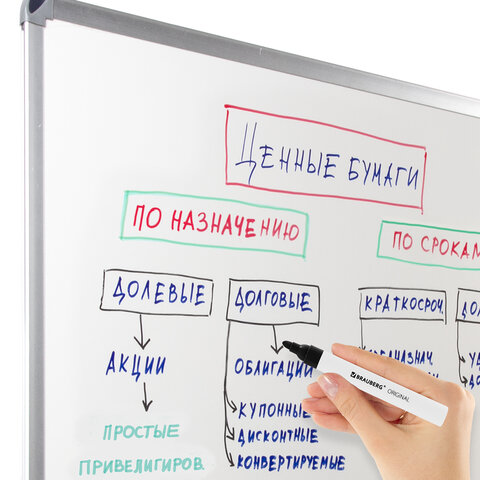 ЦЕННЫЕ БУМАГИ
ПО НАЗНАЧЕНИЮ
ПО СРОКАМ
ДОЛЕВЫЕ
ДОЛГОВЫЕ
КРАТКОСРОЧ.
АКЦИИ
ОБЛИГАЦИИ
BRAUBERG ORIGINAL
ПРОСТЫЕ
ПРИВЕЛИГИРОВ.
КУПОННЫЕ
ДИСКОНТНЫЕ
КОНВЕРТИРУЕМЫЕ